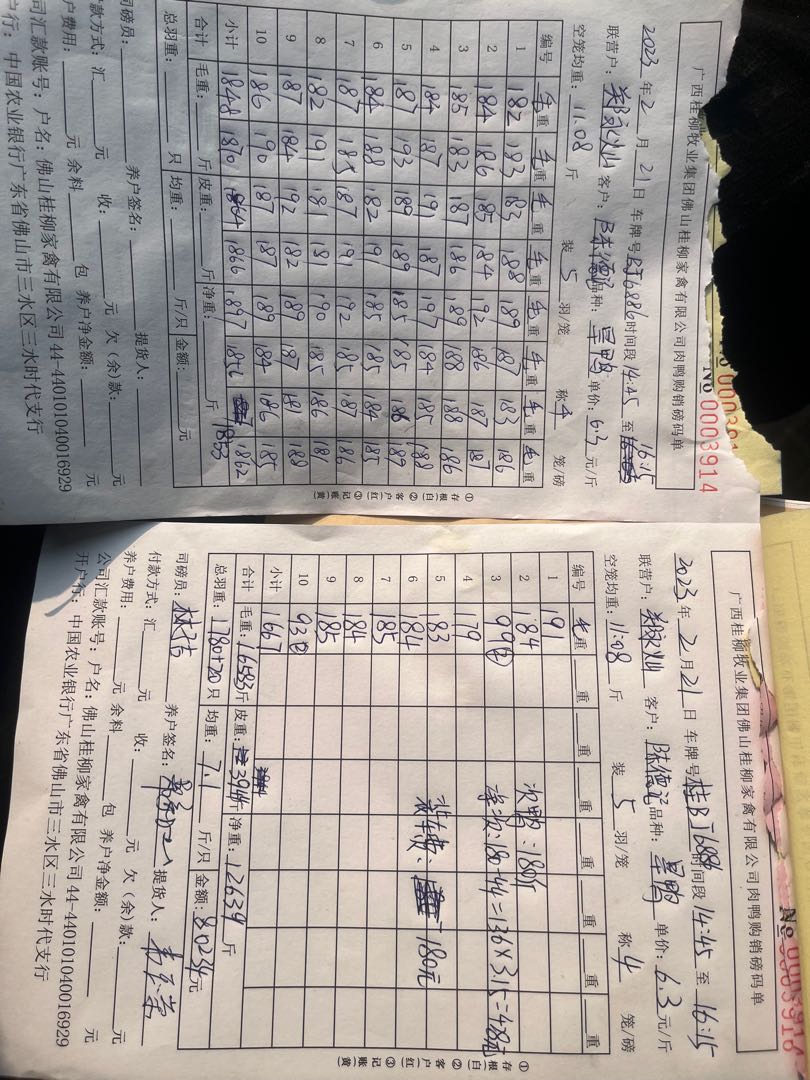 广西桂柳牧业集团佛山桂柳家禽有限公司肉鸭购销磅码单
№ 0003914
2023年2月21日 车牌号BJ6886时间段14:45至16:15
联营户: 郑永灿 客户: 品种: 旱鸭 单价: 6.3元/斤
空笼均重: 11.08 斤 装 5 羽/笼 称 4 笼/磅
编号 毛重 毛重 毛重 毛重 毛重 毛重 毛重 毛重
1 182 183 183 188 189 187 183 186
2 184 186 185 184 192 186 187 187
3 185 183 187 186 189 188 188 186
4 184 187 191 187 197 184 185 188
5 187 193 189 189 185 185 186 189
6 184 188 182 191 185 185 184 185
7 187 185 187 191 192 185 187 186
8 182 191 181 181 190 185 186 181
9 187 184 192 182 189 187 181 188
10 186 190 187 187 189 184 186 185
小计 1848 1870 1864 1866 1897 1856 1853 1862
合计 毛重: 斤 皮重: 斤 净重: 斤
总羽重: 只 均重: 斤/只 金额: 元
司磅员: 养户签名: 提货人:
付款方式: 汇 元 收: 元 欠(余)款: 元
养户费用: 元 余料 包 养户净金额: 元
公司汇款账号: 户名: 佛山桂柳家禽有限公司 44-440101040016929
开户行: 中国农业银行广东省佛山市三水区三水时代支行
①存根(白) ②客户(红) ③记账(黄)
广西桂柳牧业集团佛山桂柳家禽有限公司肉鸭购销磅码单
№ 0003916
2023年2月21日 车牌号桂BJ6886时间段14:45至16:15
联营户: 郑永灿 客户: 品种: 旱鸭 单价: 6.3元/斤
空笼均重: 11.08 斤 装 5 羽/笼 称 4 笼/磅
编号 毛重 重 重 重 重 重 重 重
1 191
2 184 次鸭: 180斤
3 99② 净次: 180-44=136×3.15=428元
4 179
5 183 装车费: 180元
6 184
7 185
8 184
9 185
10 93②
小计 1667
合计 毛重: 16583斤 皮重: 3944斤 净重: 12639斤
总羽重: 1780+20只 均重: 7.1 斤/只 金额: 80234元
司磅员: 养户签名: 提货人:
付款方式: 汇 元 收: 元 欠(余)款: 元
养户费用: 元 余料 包 养户净金额: 元
公司汇款账号: 户名: 佛山桂柳家禽有限公司 44-440101040016929
开户行: 中国农业银行广东省佛山市三水区三水时代支行
①存根(白) ②客户(红) ③记账(黄)